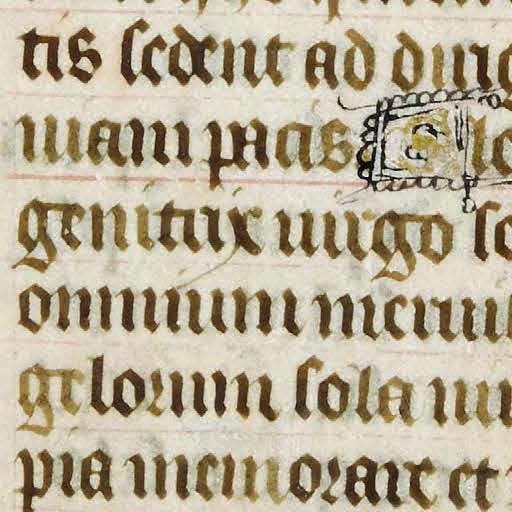 tis sedent ad dirig
uiam pacis Glo
genitrix uirgo se
omnium meru
gelorum sola ui
pia memorare et